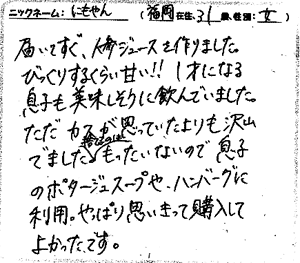 ニックネーム:にもやん (福岡在住,31歳,性別:女)
届いてすぐ、人参ジュースを作りました。
びっくりするくらい甘い!!1才になる
息子も美味しそうに飲んでいました。
ただカスが思っていたよりも沢山
でました。捨てるのはもったいないので息子
のポタージュスープや、ハンバーグに
利用。やっぱり思いきって購入して
よかったです。